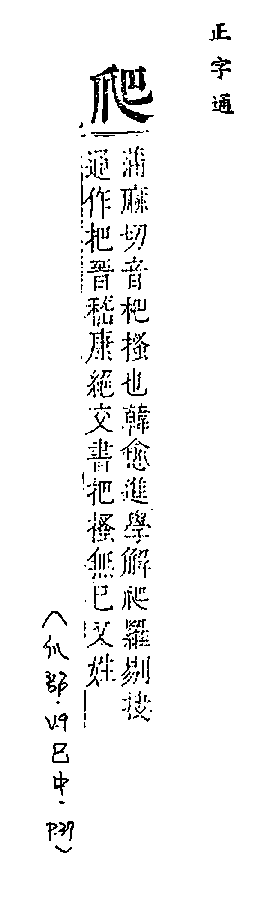 正字通
爬
蒲麻切音杷搔也韓愈進學解爬羅剔抉
通作把晋嵇康絕交書把搔無已又姓
(爪部.V9巳中.P.37)